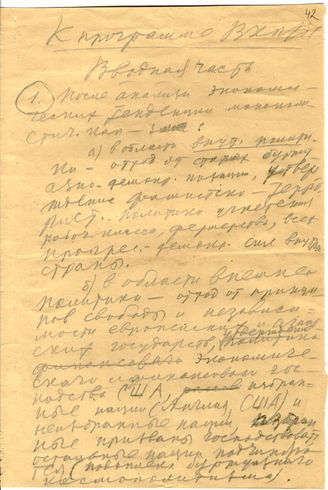 42
К программе ВКП(б)
Вводная часть
1. После анализа экономи-
ческих тенденций монопол-
стич. кап-зма:
а) в области внут. полити-
ки — отход от старых бурж
азно-демокр. позиций, утвер-
ждение фашистско-терро-
рист. политики угнетения
рабоч. класса, фермерства, всех
прогрес.-демокр. сил внутри
страны.
б) в области внешней
политики — отход от принци
пов свободы и независи-
мости европейских
ских государств, политика
финансового экономиче-
ского и финансового гос-
подства США, избран-
ные нации (Англия, США) и
неизбранные нации, избран
ные призваны господствовать
остальные нации подчинять
ся (подоплека буржуазного
космополитизма).